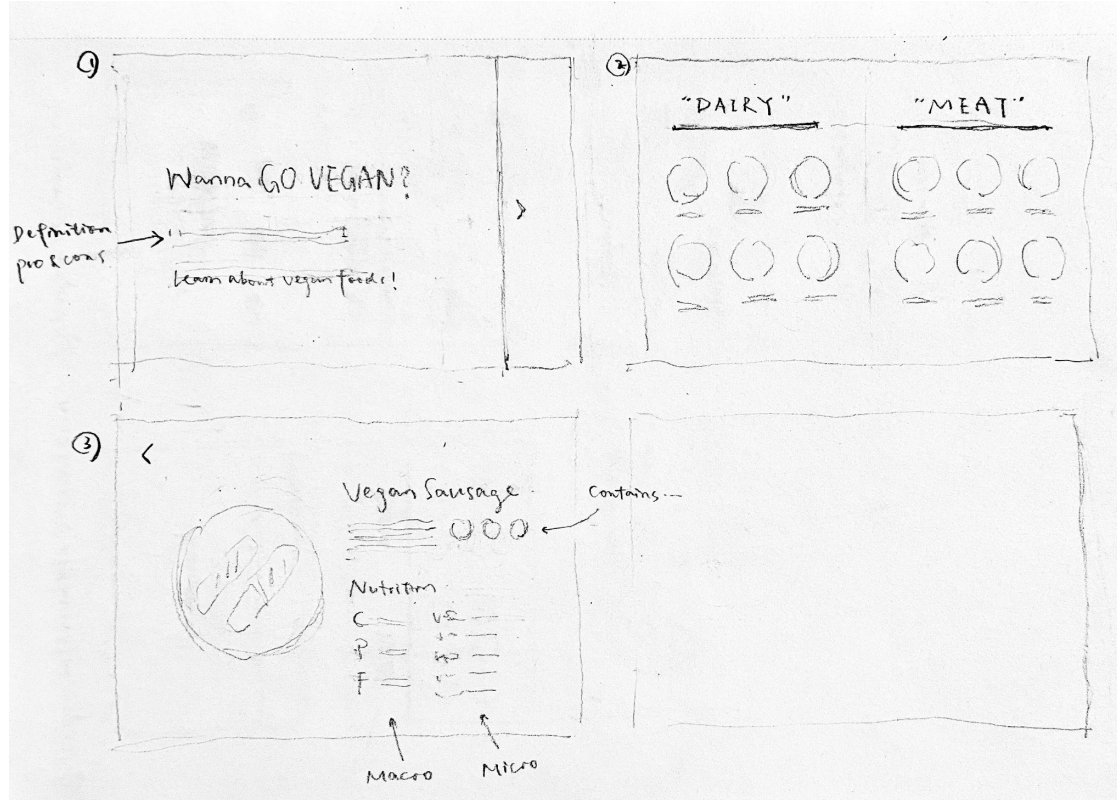 ①
Wanna GO VEGAN?
Definition
pro & cons
Learn about vegan foods!
>
②
"DAIRY"
"MEAT"
③
<
Vegan Sausage
Contains...
Nutrition
C
P
F
Macro
Micro